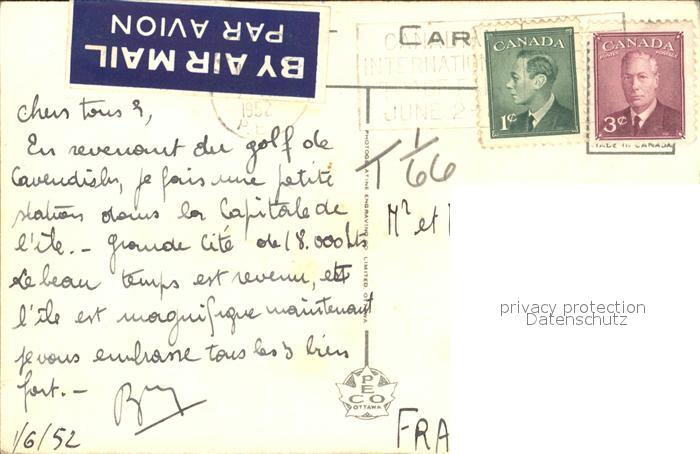 BY AIR MAIL
PAR AVION
CAR
CANADA
INTERNATIONAL
JUNE 2-
1952
CANADA
1¢
CANADA
POSTES POSTAGE
3¢
MADE IN CANADA
T 1/66
chers tous 3,
En revenant du golf de
Cavendish, je fais une petite
station dans la Capitale de
l'île. - Grande Cité de 18.000 hts
Le beau temps est revenu, et
l'île est magnifique maintenant
je vous embrasse tous les 3 bien
fort. -
1/6/52
PHOTOGELATINE ENGRAVING CO. LIMITED OTTAWA
PECO
OTTAWA
Mr et
FRA
privacy protection
Datenschutz